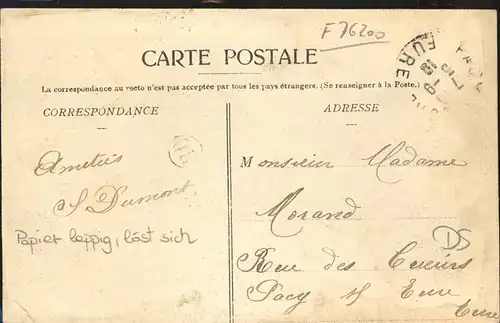 F 76200
CARTE POSTALE
La correspondance au recto n'est pas acceptée par tous les pays étrangers. (Se renseigner à la Poste.)
CORRESPONDANCE
ADRESSE
Amitiés
S Dumont
Papier lappig, löst sich
Monsieur Madame
Morand
Rue des
Pacy s/ Eure
Eure
DS
EURE